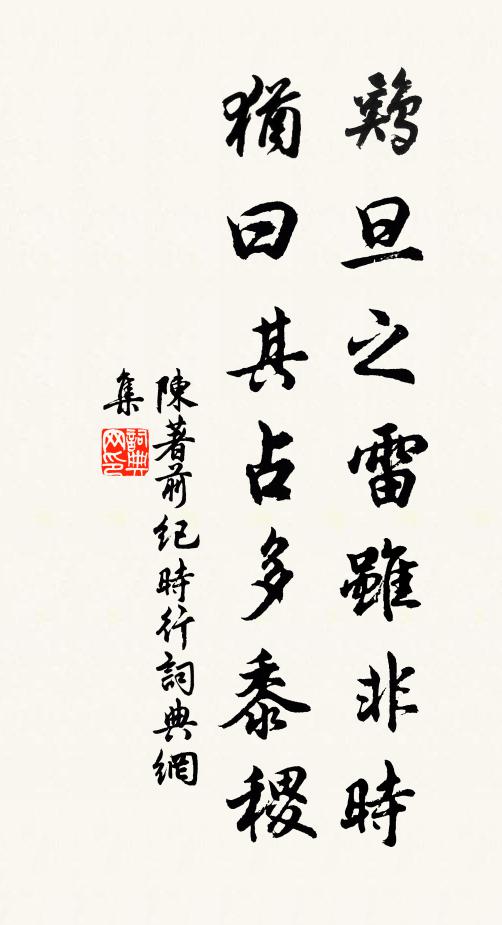 鷄旦之雷雖非時
猶曰其占多黍稷
陳著前紀時行詞典網
集
詞典
网印